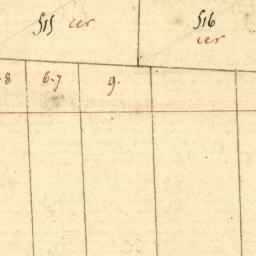 515 cer 516
cer
8 6-7 9.